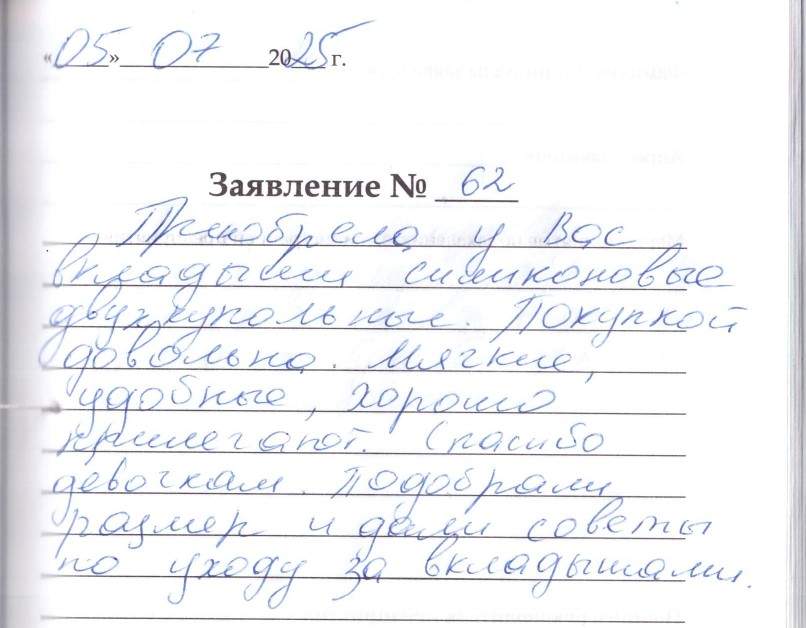 «05» 07 2025 г.
Заявление № 62
Приобрела у Вас
вкладыши силиконовые
двухкупольные. Покупкой
довольна. Мягкие,
удобные, хорошо
прилегают. Спасибо
девочкам. Подобрали
размер и дали советы
по уходу за вкладышами.